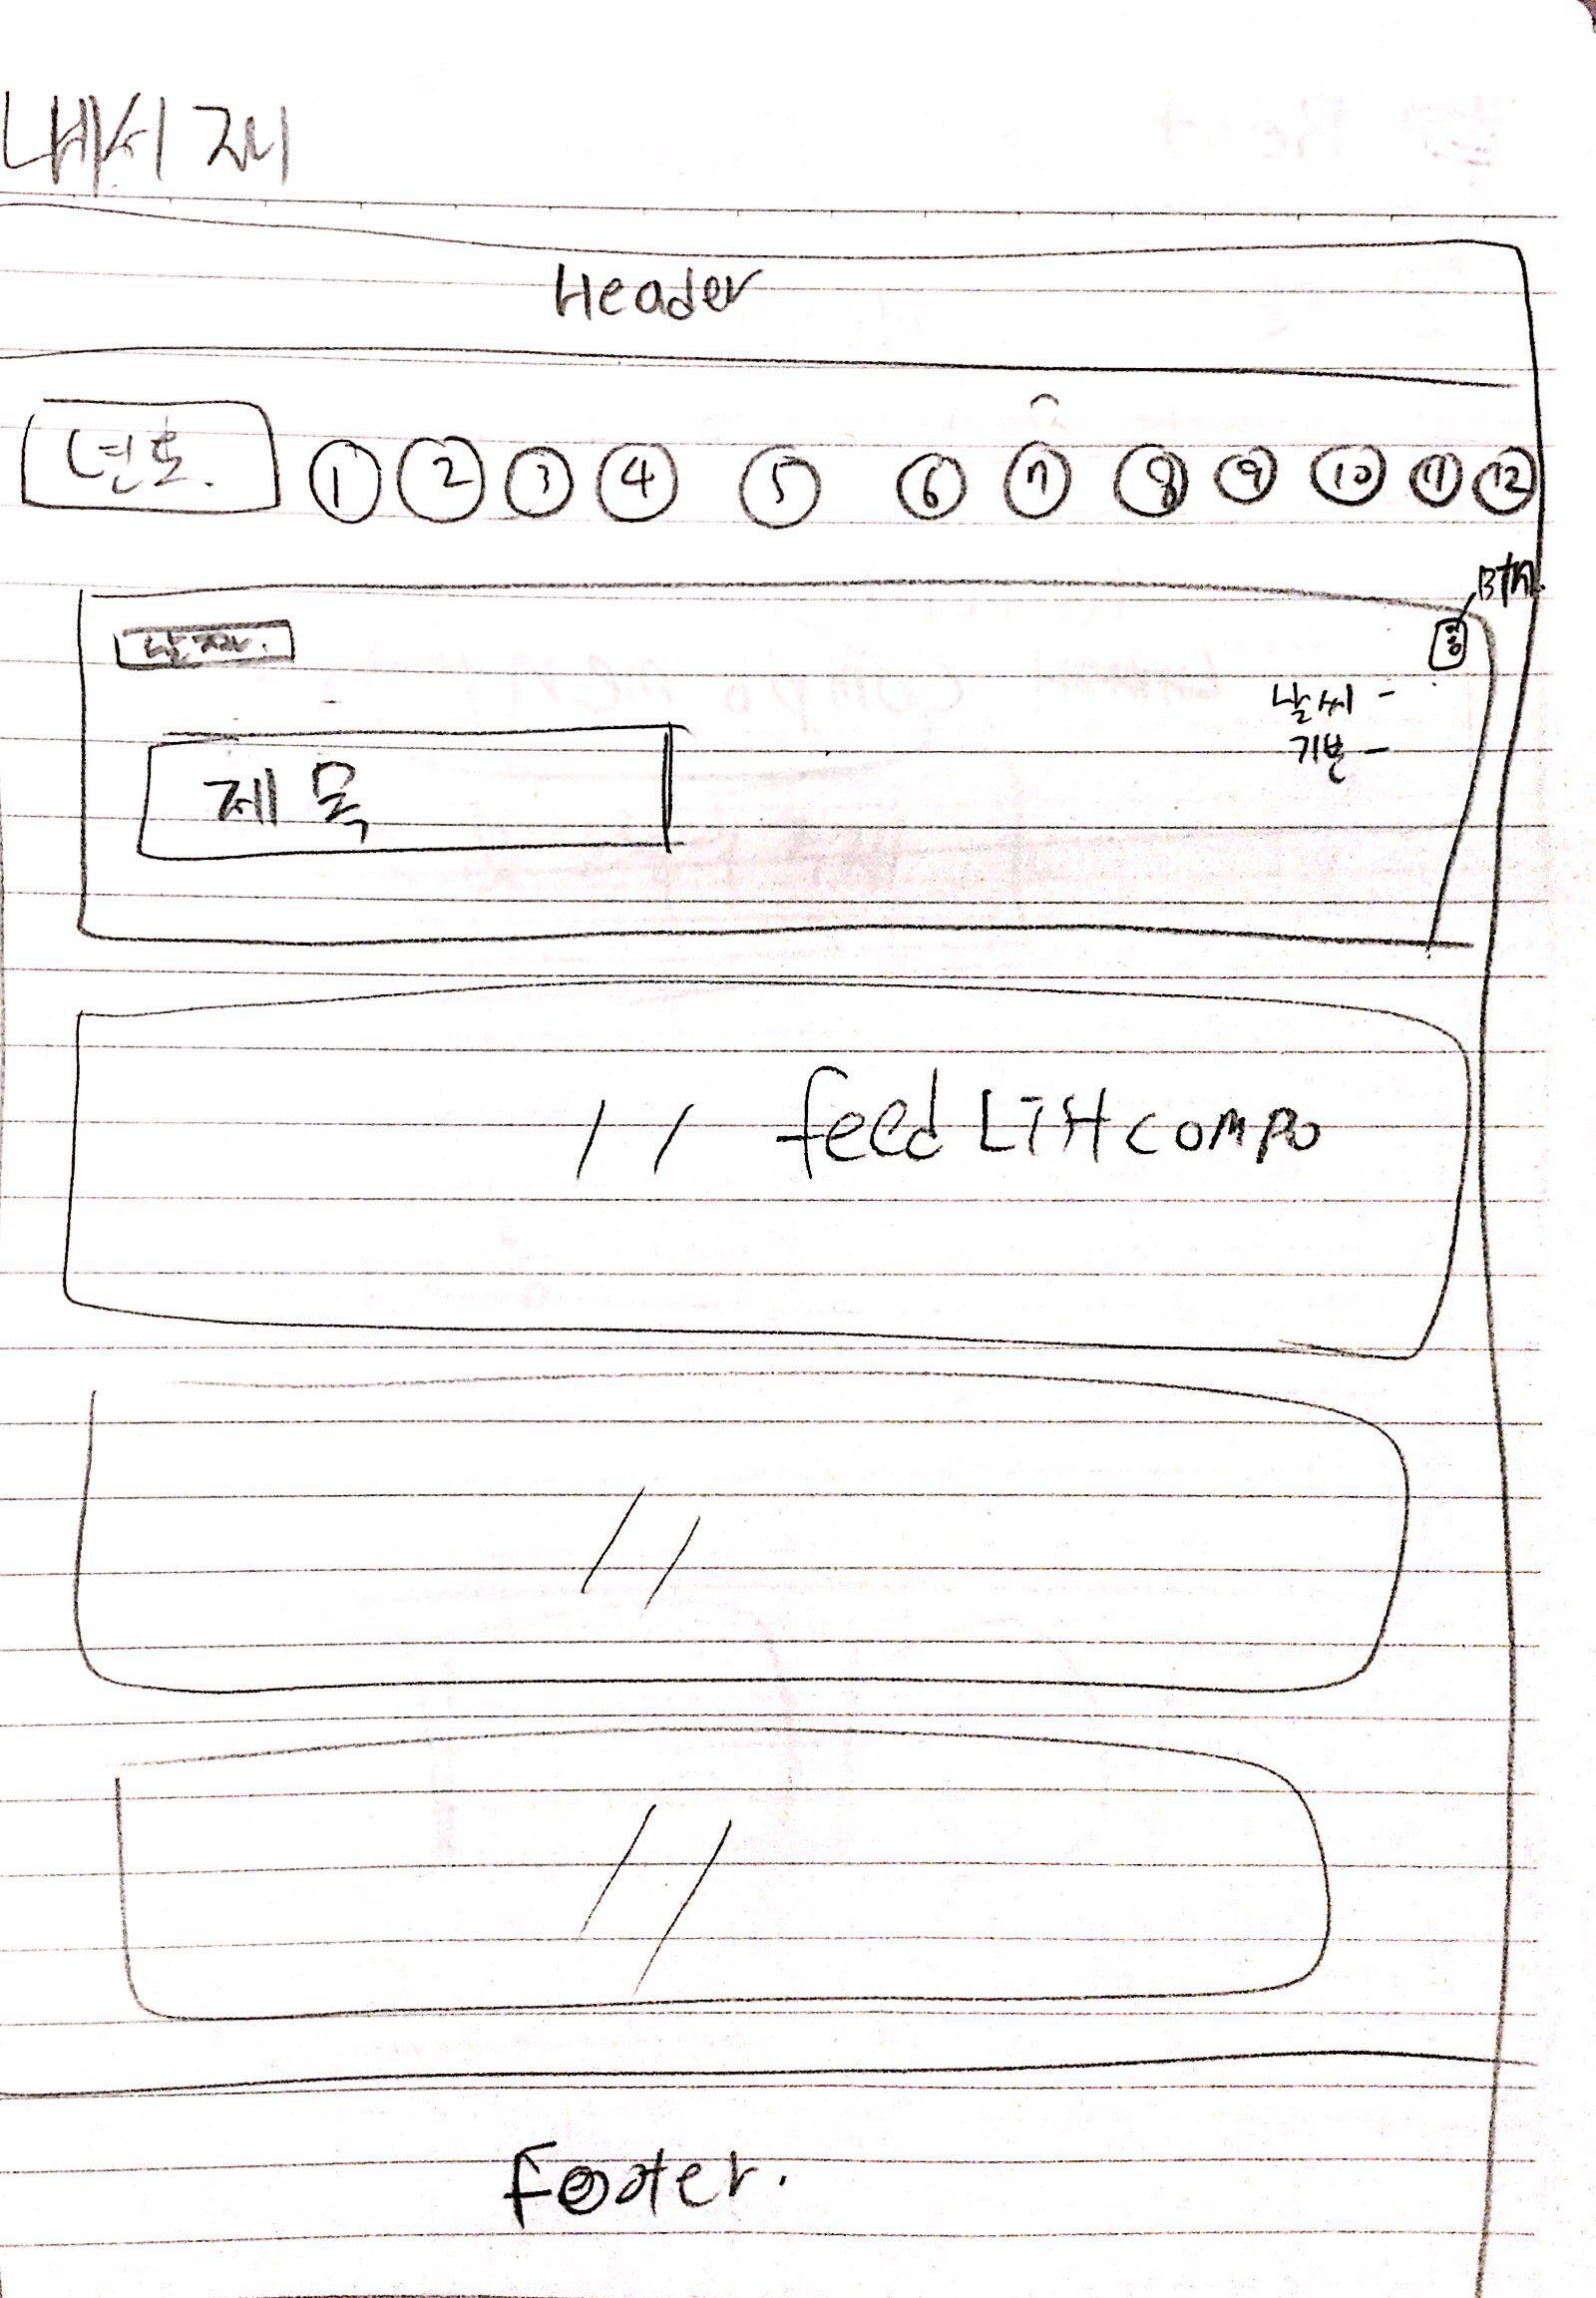 내서재
Header
년도. 1 2 3 4 5 6 7 8 9 10 11 12
Btn.
날짜.
날씨 -
기분 -
제목
// feed List compo
//
//
Footer.